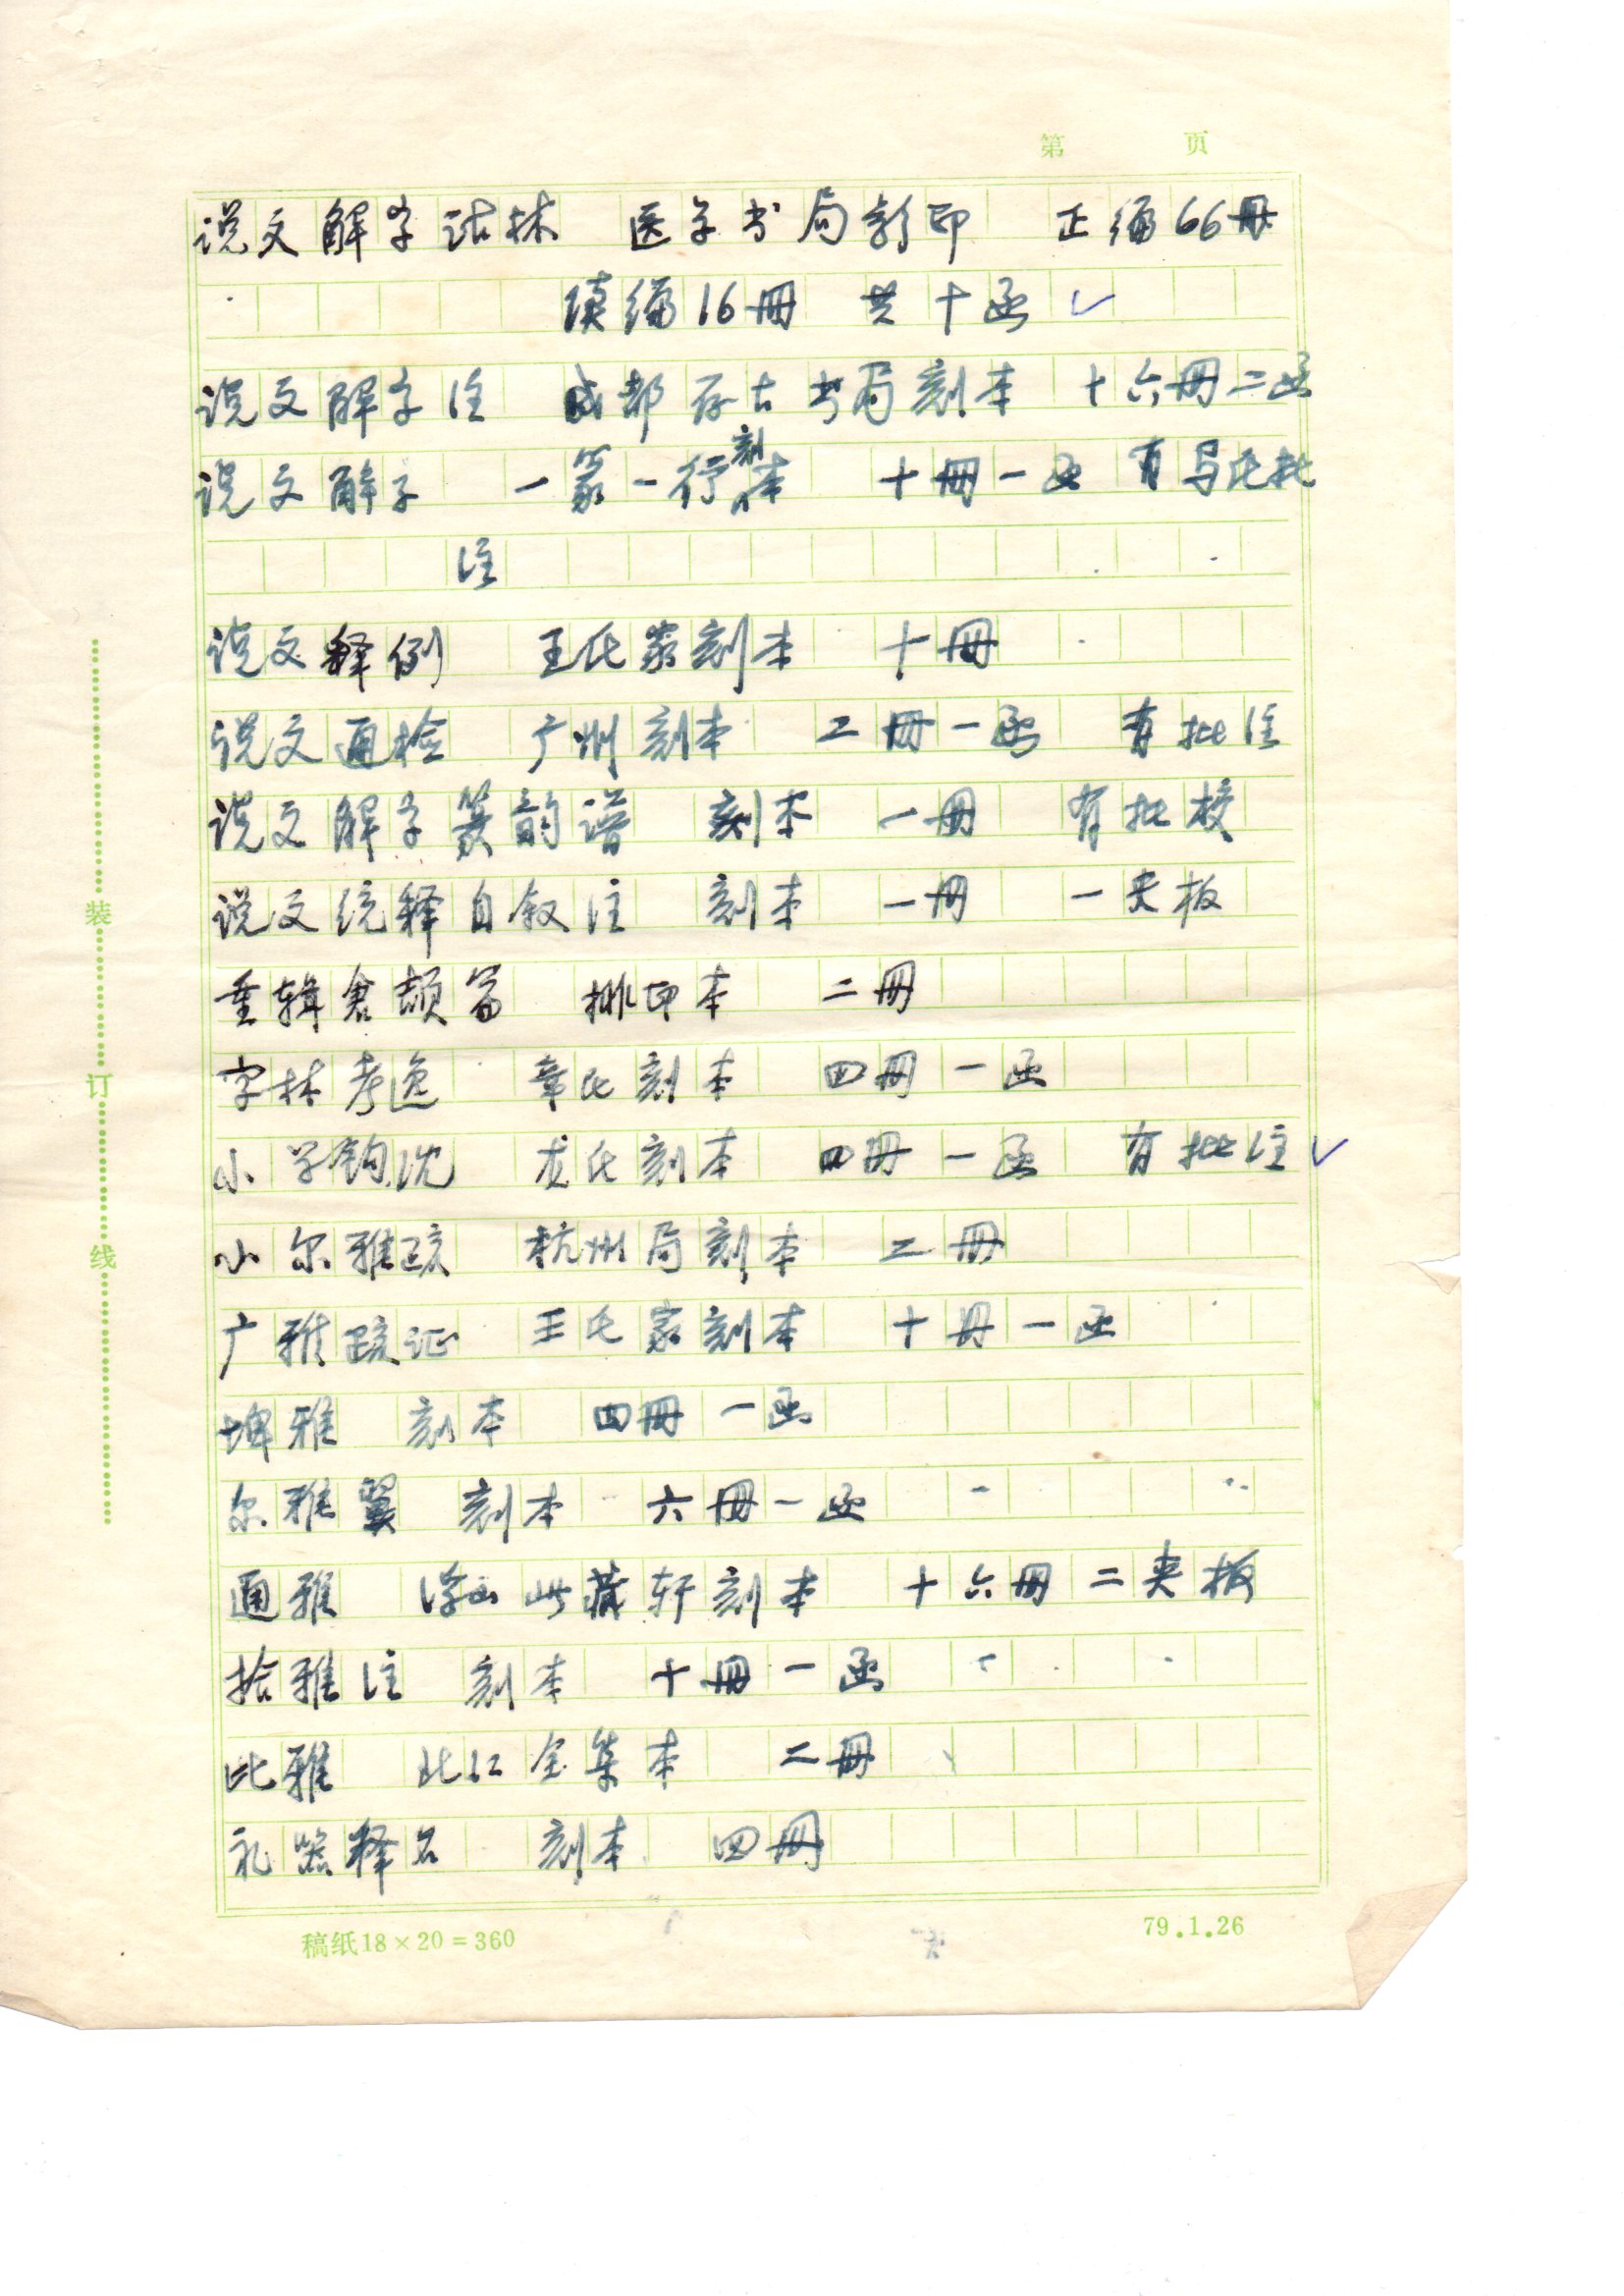 第 页
说文解字诂林 医学书局影印 正编66册
续编16册 共十函 ✓
说文解字注 成都存古书局刻本 十六册二函
说文解字 一篆一行刻本 十册一函 有马氏批
注
说文释例 王氏家刻本 十册
说文通检 广州刻本 二册一函 有批注
说文解字篆韵谱 刻本 一册 有批校
说文统释自叙注 刻本 一册 一夹板
重辑仓颉篇 排印本 二册
字林考逸 章氏刻本 四册一函
小学钩沈 龙氏刻本 四册一函 有批注 ✓
小尔雅疏 杭州局刻本 二册
广雅疏证 王氏家刻本 十册一函
埤雅 刻本 四册一函
尔雅翼 刻本 六册一函
通雅 浮山此藏轩刻本 十六册二夹板
拾雅注 刻本 十册一函
比雅 北江全集本 二册
礼器释名 刻本 四册
装订线
稿纸18×20=360 79.1.26